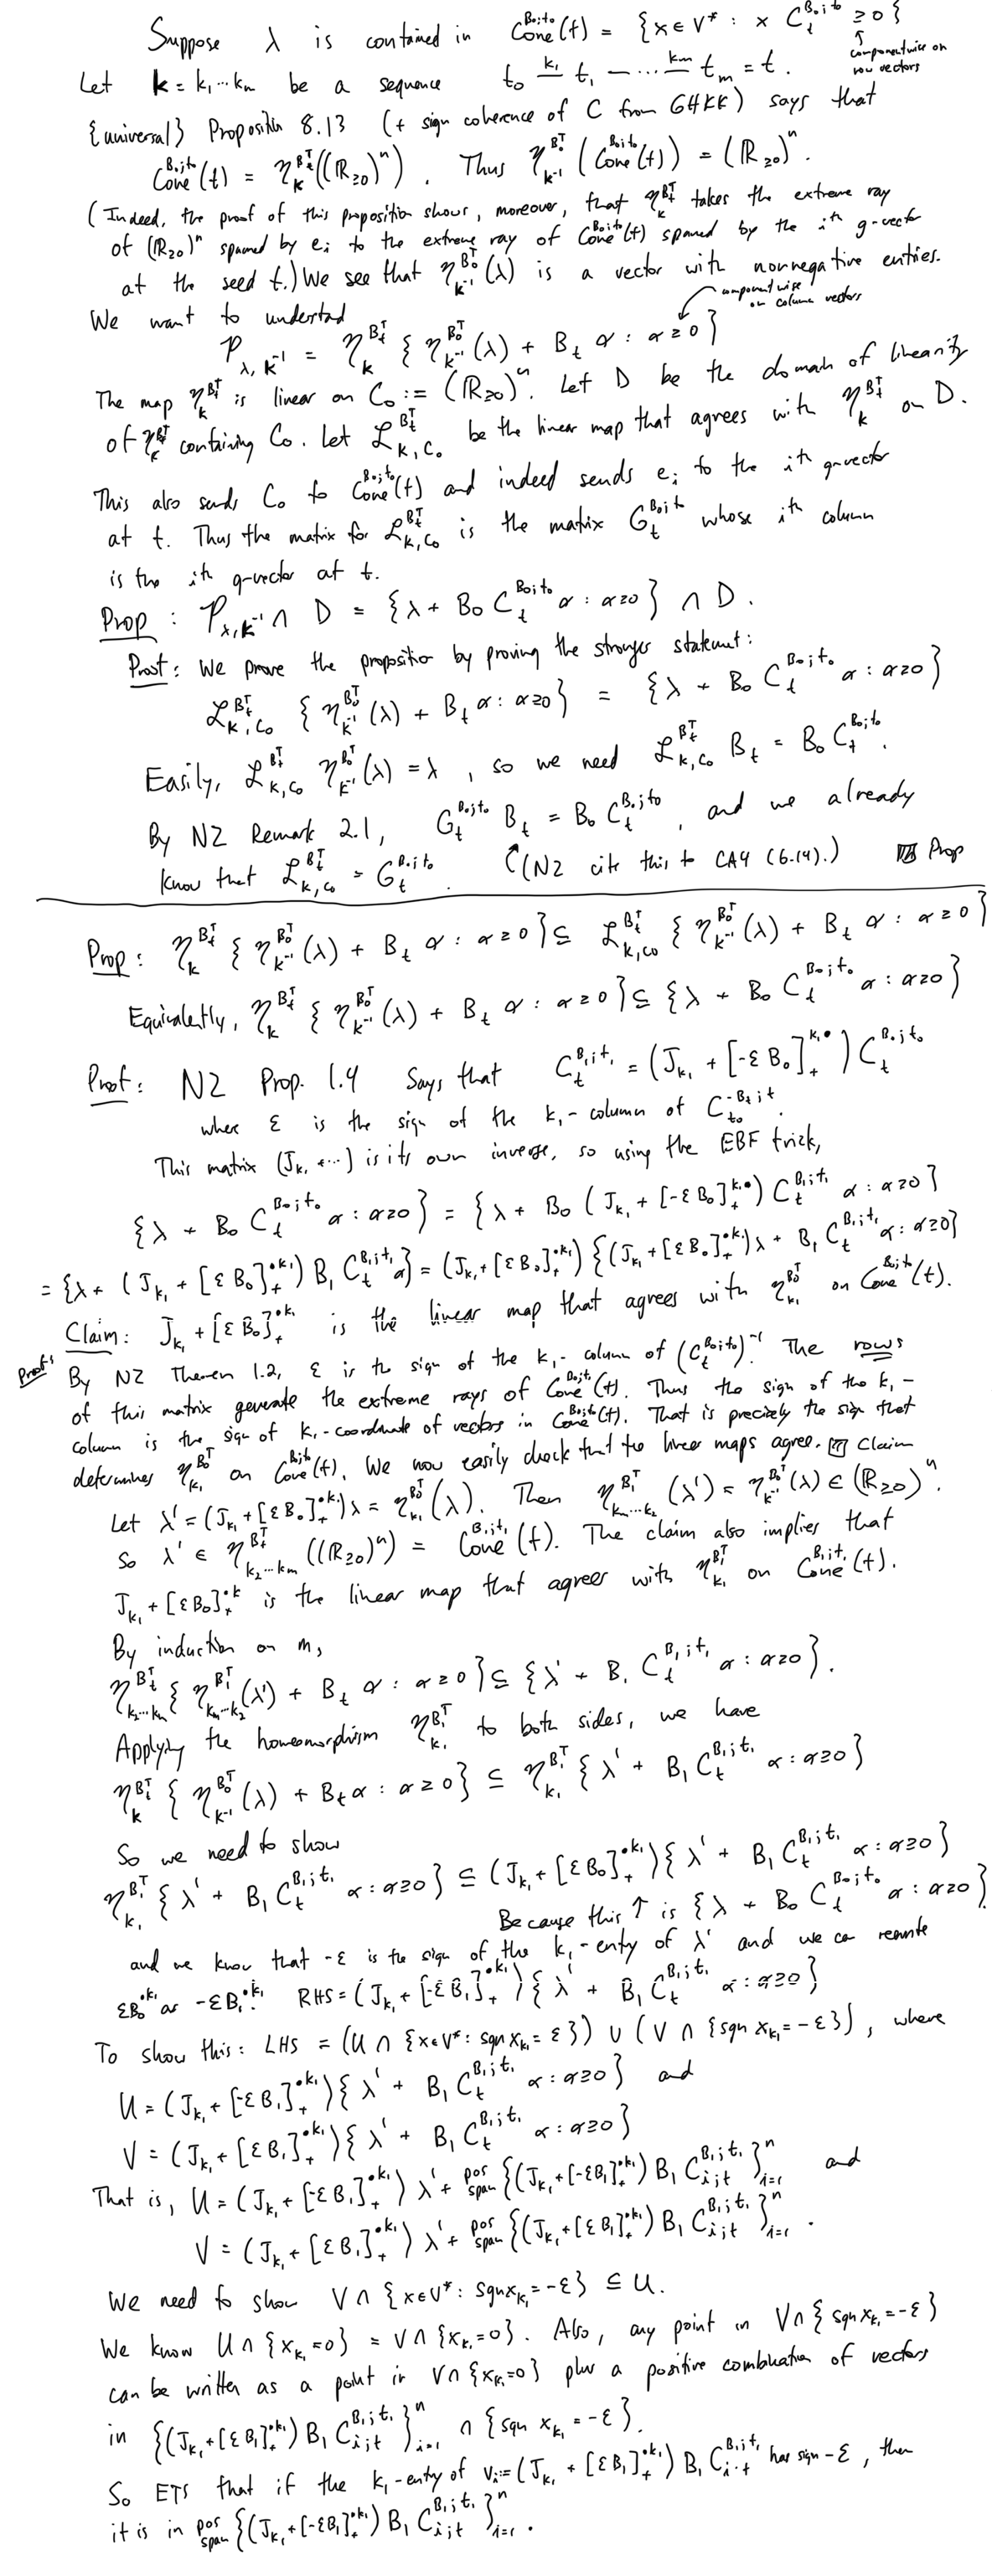 Suppose λ is contained in Cone^{B₀;t₀}(t) = {x ∈ V* : x C_t^{B₀;t₀} ≥ 0}
↑ componentwise on row vectors
Let k = k₁…k_m be a sequence t₀ —k₁— t₁ —…—k_m— t_m = t.
{universal} Proposition 8.13 (+ sign coherence of C from GHKK) says that
Cone^{B₀;t₀}(t) = η_k^{B_t^T}((ℝ≥0)^n). Thus η_{k⁻¹}^{B₀^T}(Cone^{B₀;t₀}(t)) = (ℝ≥0)^n.
(Indeed, the proof of this proposition shows, moreover, that η_k^{B_t^T} takes the extreme ray
of (ℝ≥0)^n spanned by e_i to the extreme ray of Cone^{B₀;t₀}(t) spanned by the i^th g-vector
at the seed t.) We see that η_{k⁻¹}^{B₀^T}(λ) is a vector with nonnegative entries.
We want to understad
componentwise on column vectors
P_{λ,k⁻¹} = η_k^{B_t^T} {η_{k⁻¹}^{B₀^T}(λ) + B_t α : α ≥ 0}
The map η_k^{B_t^T} is linear on C₀ := (ℝ≥0)^n. Let D be the domain of linearity
of η_k^{B_t^T} containing C₀. Let L_{k,C₀}^{B_t^T} be the linear map that agrees with η_k^{B_t^T} on D.
This also sends C₀ to Cone^{B₀;t₀}(t) and indeed sends e_i to the i^th g-vector
at t. Thus the matrix for L_{k,C₀}^{B_t^T} is the matrix G_t^{B₀;t₀} whose i^th column
is the i^th g-vector at t.
Prop: P_{λ,k⁻¹} ∩ D = {λ + B₀ C_t^{B₀;t₀} α : α ≥ 0} ∩ D.
Proof: We prove the proposition by proving the stronger statement:
L_{k,C₀}^{B_t^T} {η_{k⁻¹}^{B₀^T}(λ) + B_t α : α ≥ 0} = {λ + B₀ C_t^{B₀;t₀} α : α ≥ 0}
Easily, L_{k,C₀}^{B_t^T} η_{k⁻¹}^{B₀^T}(λ) = λ, so we need L_{k,C₀}^{B_t^T} B_t = B₀ C_t^{B₀;t₀}.
By NZ Remark 2.1, G_t^{B₀;t₀} B_t = B₀ C_t^{B₀;t₀}, and we already
know that L_{k,C₀}^{B_t^T} = G_t^{B₀;t₀}. (NZ cite this to CA4 (6.14).) ▨ Prop
Prop: η_k^{B_t^T} {η_{k⁻¹}^{B₀^T}(λ) + B_t α : α ≥ 0} ⊆ L_{k,C₀}^{B_t^T} {η_{k⁻¹}^{B₀^T}(λ) + B_t α : α ≥ 0}
Equivalently, η_k^{B_t^T} {η_{k⁻¹}^{B₀^T}(λ) + B_t α : α ≥ 0} ⊆ {λ + B₀ C_t^{B₀;t₀} α : α ≥ 0}
Proof: NZ Prop. 1.4 says that C_t^{B₁;t₁} = (J_{k₁} + [-εB₀]_+^{k₁•}) C_t^{B₀;t₀}
where ε is the sign of the k₁-column of C_{t₀}^{-B_t;t}.
This matrix (J_{k₁} + …) is its own inverse, so using the EBF trick,
{λ + B₀ C_t^{B₀;t₀} α : α ≥ 0} = {λ + B₀ (J_{k₁} + [-εB₀]_+^{k₁•}) C_t^{B₁;t₁} α : α ≥ 0}
= {λ + (J_{k₁} + [εB₀]_+^{•k₁}) B₁ C_t^{B₁;t₁} α} = (J_{k₁} + [εB₀]_+^{•k₁}) {(J_{k₁} + [εB₀]_+^{•k₁})λ + B₁ C_t^{B₁;t₁} α : α ≥ 0}
Claim: J_{k₁} + [εB₀]_+^{•k₁} is the linear map that agrees with η_{k₁}^{B₀^T} on Cone^{B₀;t₀}(t).
Proof: By NZ Theorem 1.2, ε is the sign of the k₁-column of (C_t^{B₀;t₀})⁻¹. The rows
of this matrix generate the extreme rays of Cone^{B₀;t₀}(t). Thus the sign of the k₁-
column is the sign of k₁-coordinate of vectors in Cone^{B₀;t₀}(t). That is precisely the sign that
determines η_{k₁}^{B₀^T} on Cone^{B₀;t₀}(t). We now easily check that the linear maps agree. ▨ Claim
Let λ' = (J_{k₁} + [εB₀]_+^{•k₁})λ = η_{k₁}^{B₀^T}(λ). Then η_{k_m…k₂}^{B₁^T}(λ') = η_{k⁻¹}^{B₀^T}(λ) ∈ (ℝ≥0)^n.
So λ' ∈ η_{k₂…k_m}^{B_t^T}((ℝ≥0)^n) = Cone^{B₁;t₁}(t). The claim also implies that
J_{k₁} + [εB₀]_+^{•k} is the linear map that agrees with η_{k₁}^{B₁^T} on Cone^{B₁;t₁}(t).
By induction on m,
η_{k₂…k_m}^{B_t^T} {η_{k_m…k₂}^{B₁^T}(λ') + B_t α : α ≥ 0} ⊆ {λ' + B₁ C_t^{B₁;t₁} α : α ≥ 0}.
Applying the homeomorphism η_{k₁}^{B₁^T} to both sides, we have
η_k^{B_t^T} {η_{k⁻¹}^{B₀^T}(λ) + B_t α : α ≥ 0} ⊆ η_{k₁}^{B₁^T} {λ' + B₁ C_t^{B₁;t₁} α : α ≥ 0}
So we need to show
η_{k₁}^{B₁^T} {λ' + B₁ C_t^{B₁;t₁} α : α ≥ 0} ⊆ (J_{k₁} + [εB₀]_+^{•k₁}) {λ' + B₁ C_t^{B₁;t₁} α : α ≥ 0}
Because this ↑ is {λ + B₀ C_t^{B₀;t₀} α : α ≥ 0}
and we know that -ε is the sign of the k₁-entry of λ' and we can rewrite
εB₀^{•k₁} as -εB₁^{•k₁}: RHS = (J_{k₁} + [-εB₁]_+^{•k₁}) {λ' + B₁ C_t^{B₁;t₁} α : α ≥ 0}
To show this: LHS = (U ∩ {x ∈ V* : sgn x_{k₁} = ε}) ∪ (V ∩ {sgn x_{k₁} = -ε}), where
U = (J_{k₁} + [-εB₁]_+^{•k₁}) {λ' + B₁ C_t^{B₁;t₁} α : α ≥ 0} and
V = (J_{k₁} + [εB₁]_+^{•k₁}) {λ' + B₁ C_t^{B₁;t₁} α : α ≥ 0}
That is, U = (J_{k₁} + [-εB₁]_+^{•k₁}) λ' + pos span {(J_{k₁} + [-εB₁]_+^{•k₁}) B₁ C_{i;t}^{B₁;t₁}}_{i=1}^n and
V = (J_{k₁} + [εB₁]_+^{•k₁}) λ' + pos span {(J_{k₁} + [εB₁]_+^{•k₁}) B₁ C_{i;t}^{B₁;t₁}}_{i=1}^n.
We need to show V ∩ {x ∈ V* : sgn x_{k₁} = -ε} ⊆ U.
We know U ∩ {x_{k₁} = 0} = V ∩ {x_{k₁} = 0}. Also, any point in V ∩ {sgn x_{k₁} = -ε}
can be written as a point in V ∩ {x_{k₁} = 0} plus a positive combination of vectors
in {(J_{k₁} + [εB₁]_+^{•k₁}) B₁ C_{i;t}^{B₁;t₁}}_{i=1}^n ∩ {sgn x_{k₁} = -ε}.
So ETS that if the k₁-entry of v_i := (J_{k₁} + [εB₁]_+^{•k₁}) B₁ C_{i;t}^{B₁;t₁} has sign -ε, then
it is in pos span {(J_{k₁} + [-εB₁]_+^{•k₁}) B₁ C_{i;t}^{B₁;t₁}}_{i=1}^n.